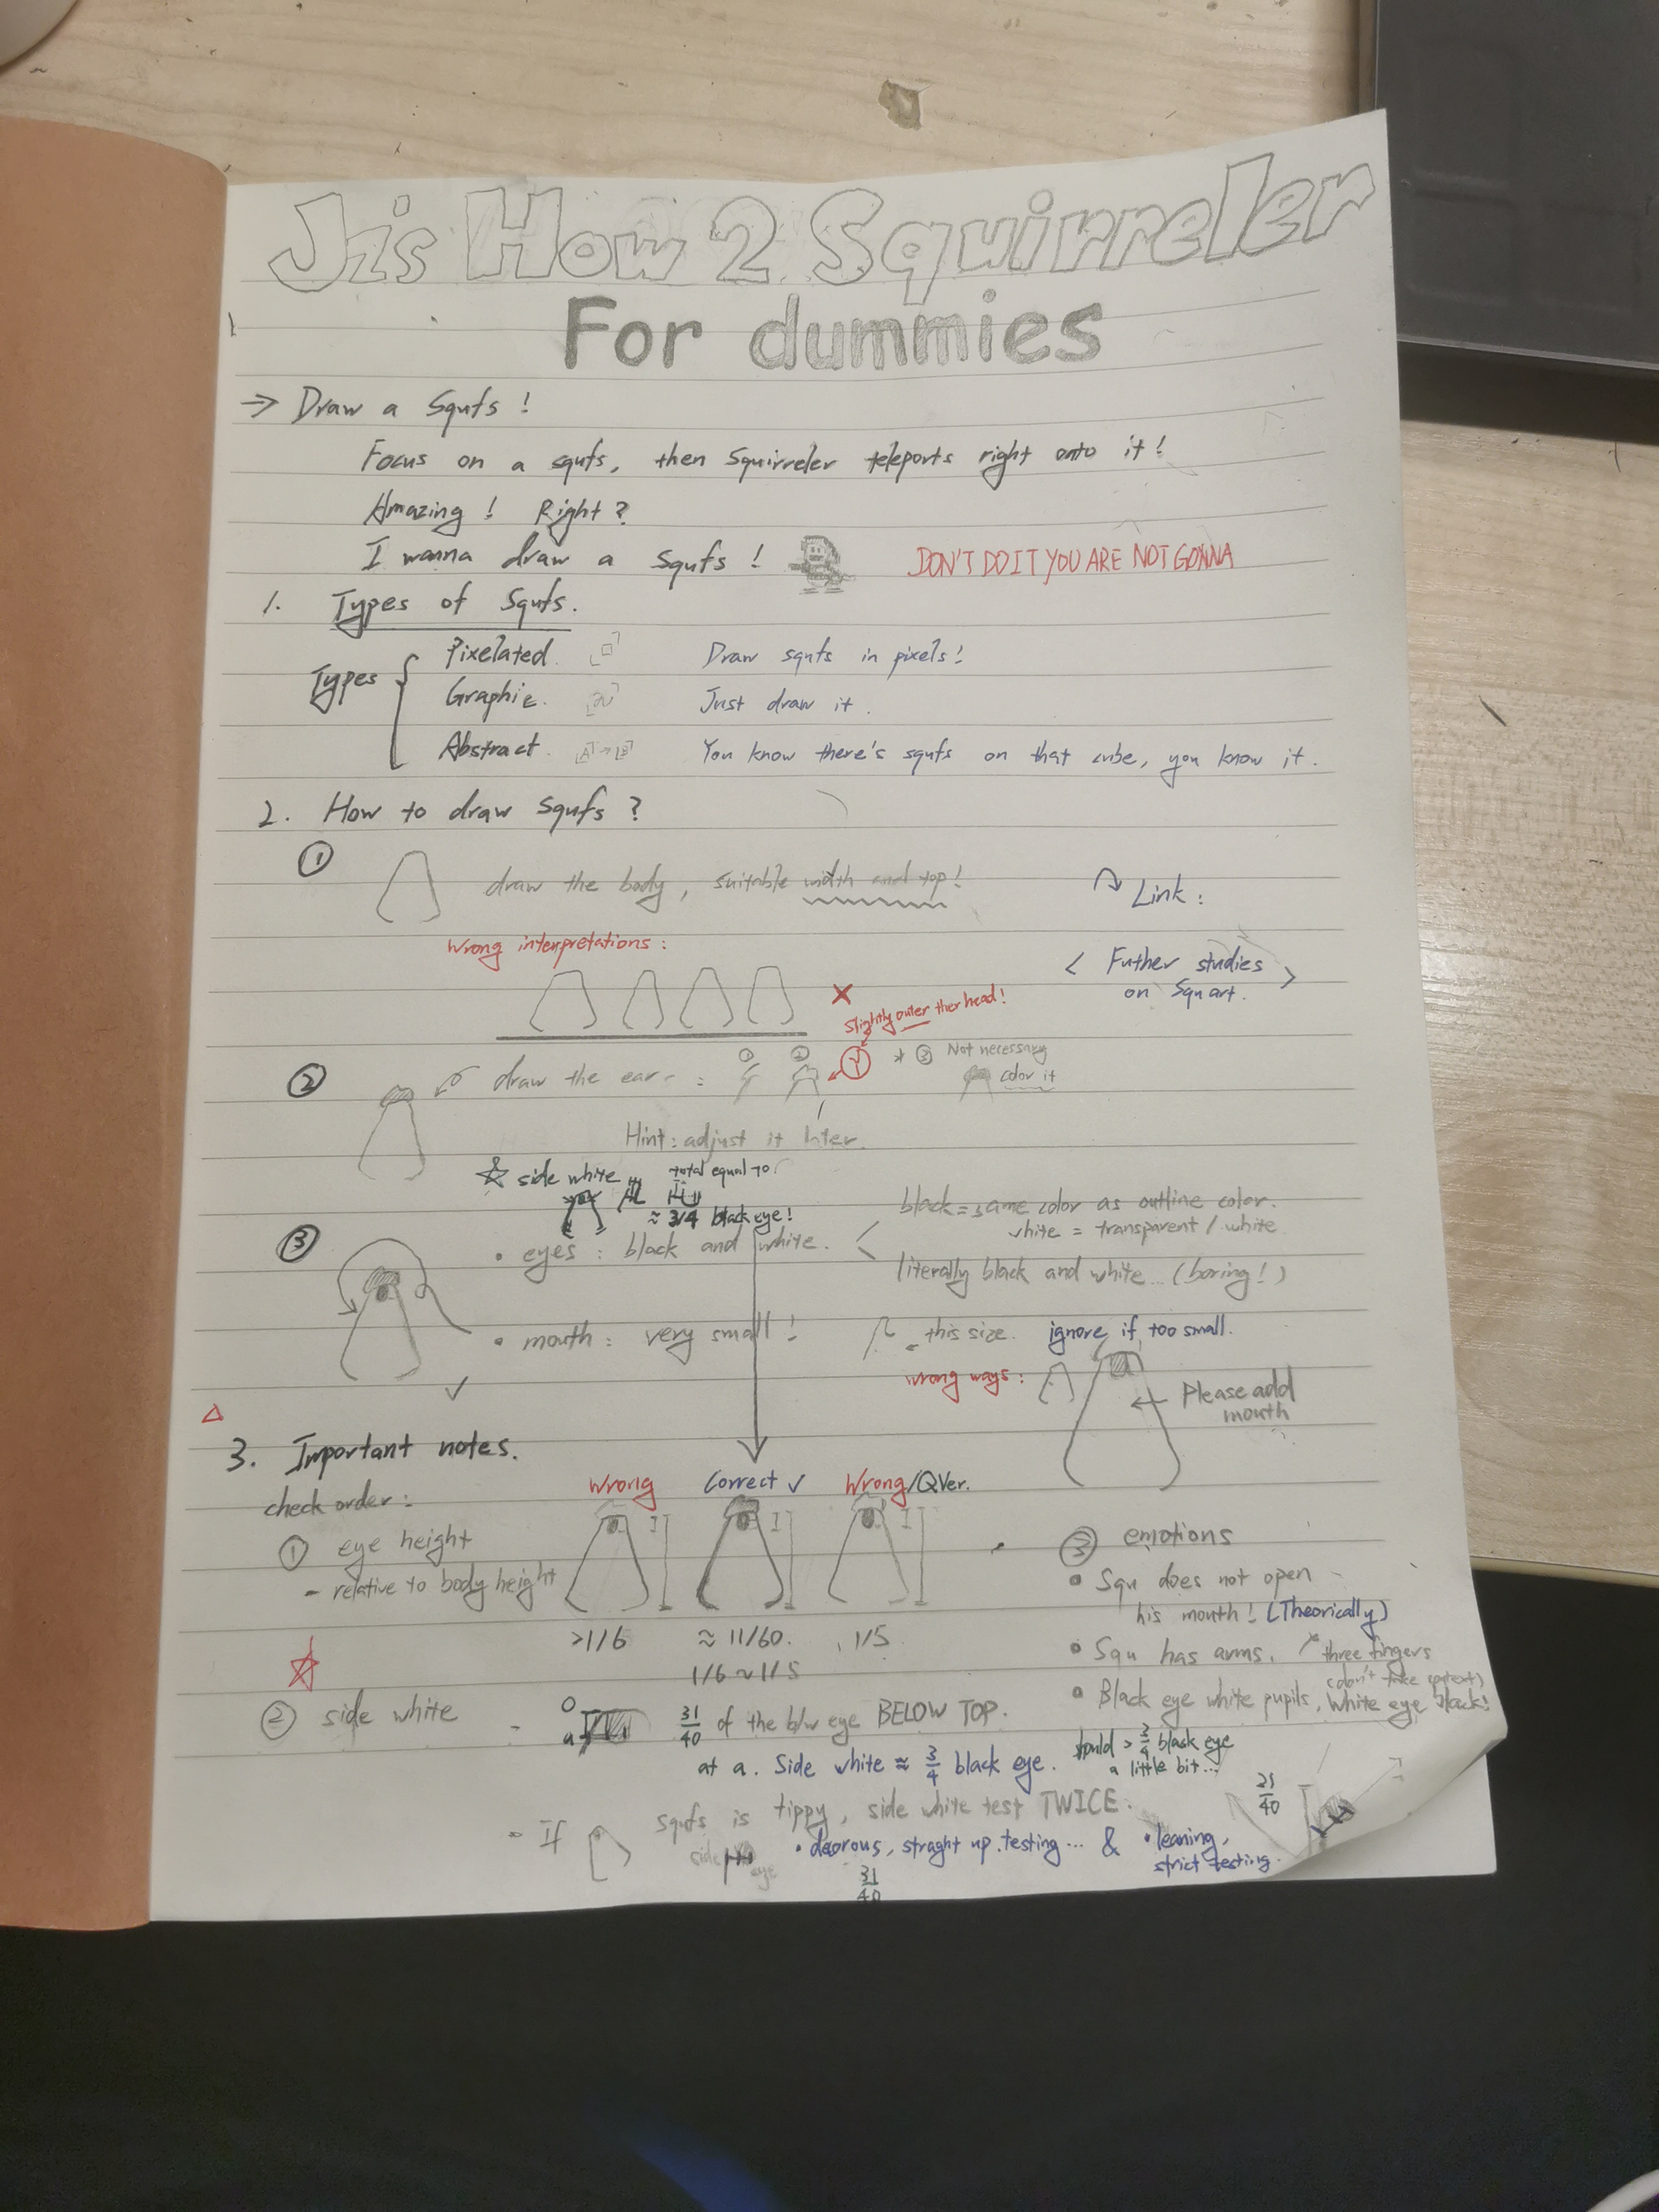 Jz's How 2 Squirreler
For dummies
→ Draw a Squfs !
Focus on a squfs, then Squirreler teleports right onto it !
Amazing ! Right ?
I wanna draw a squfs !
DON'T DO IT YOU ARE NOT GONNA
1. Types of Squfs.
Types
Pixelated. Draw squfs in pixels !
Graphic. Just draw it.
Abstract. [A]→[B] You know there's squfs on that cube, you know it.
2. How to draw squfs ?
① draw the body, suitable width and top !
Link :
Wrong interpretations :
< Futher studies
on Squart. >
X
Slightly outer ther head !
② draw the ear : ① ② * ③ Not necessary
color it
Hint : adjust it later.
☆ side white total equal to :
≈ 3/4 black eye !
③ • eyes : black and white.
black = same color as outline color.
white = transparent / white
literally black and white... (boring !)
• mouth : very small !
this size. ignore if too small.
wrong ways :
Please add
mouth
✓
△
3. Important notes.
check order :
Wrong Correct ✓ Wrong/QVer.
① eye height
- relative to body height
>1/6 ≈ 11/60. 1/5
1/6 ~ 1/5
③ emotions
• Squ does not open
his mouth ! (Theorically)
• Squ has arms. three fingers
• Black eye white pupils, white eye black !
② side white - 31/40 of the b/w eye BELOW TOP.
at a. Side white ≈ 3/4 black eye.
should > 3/4 black eye
a little bit...
• If squfs is tippy, side white test TWICE.
side eye
straght up testing... & • leaning,
strict testing.
31/40